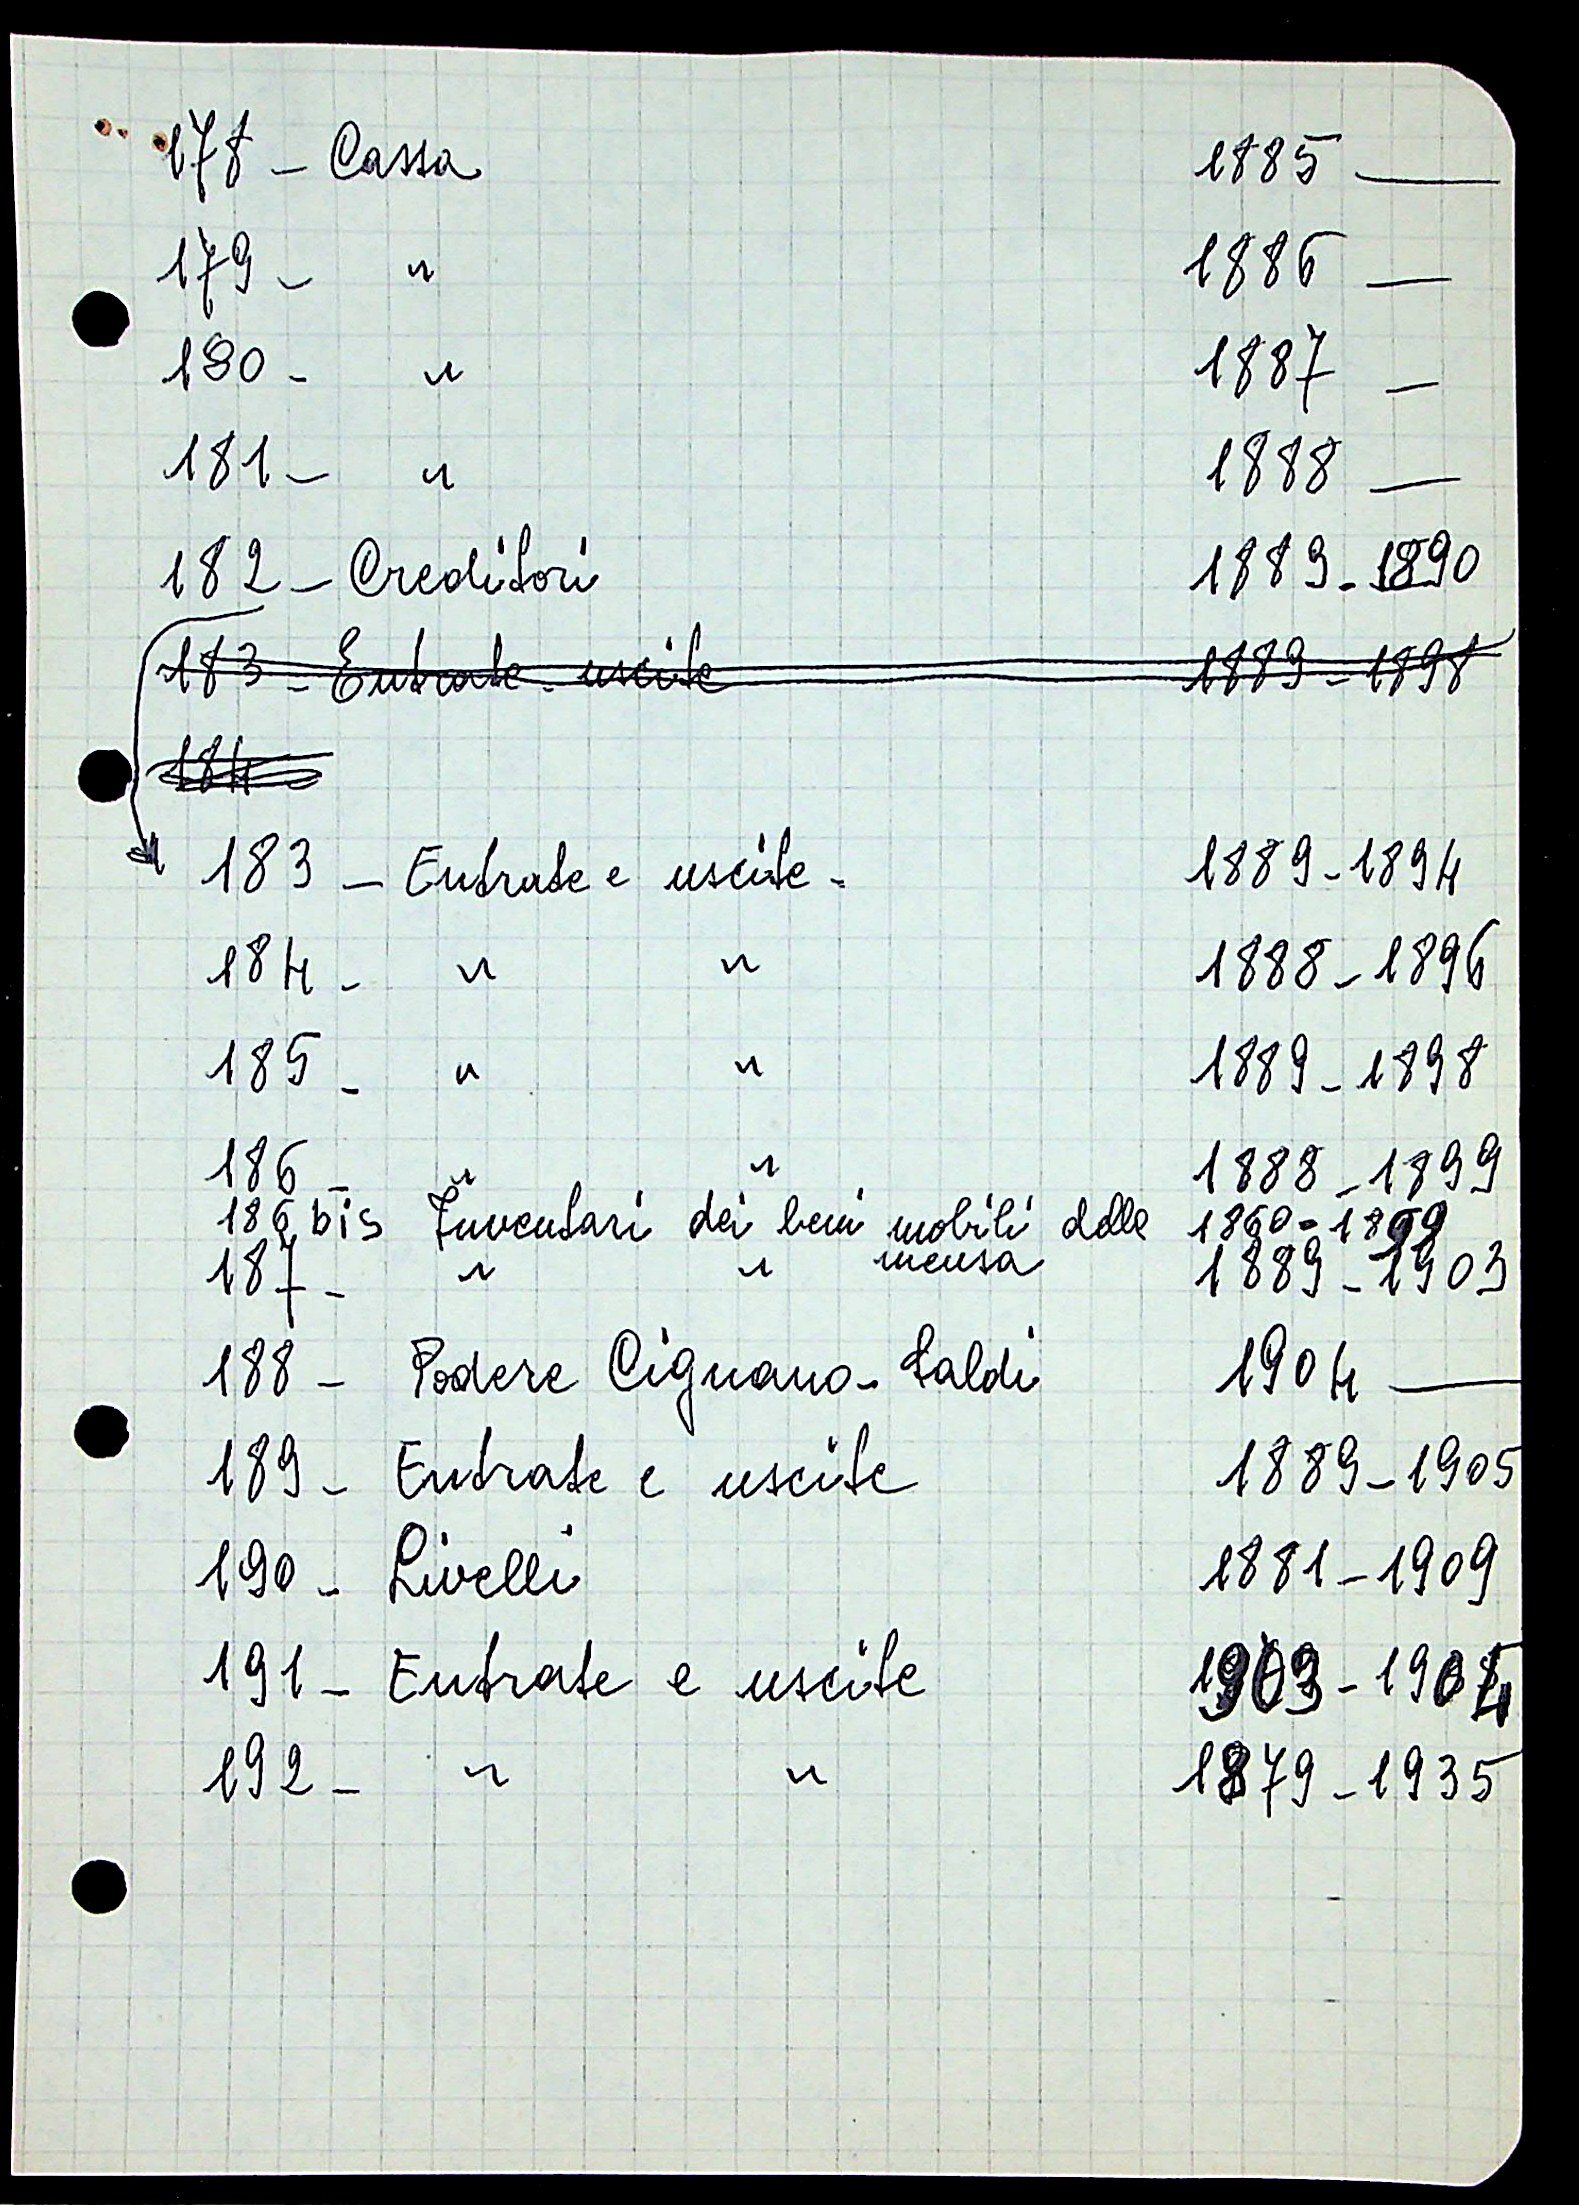 178 - Cassa 1885 —
179 - " 1886 —
180 - " 1887 —
181 - " 1888 —
182 - Creditori 1889 - 1890
183 - Entrate - uscite 1889 - 1898
184
183 - Entrate e uscite - 1889 - 1894
184 - " " 1888 - 1896
185 - " " 1889 - 1898
186 - " " 1888 - 1899
186 bis Inventari dei beni mobili della mensa 1860 - 1899
187 - " " 1889 - 1903
188 - Podere Cignano - Saldi 1904 —
189 - Entrate e uscite 1889 - 1905
190 - Livelli 1881 - 1909
191 - Entrate e uscite 1903 - 1904
192 - " " 1879 - 1935